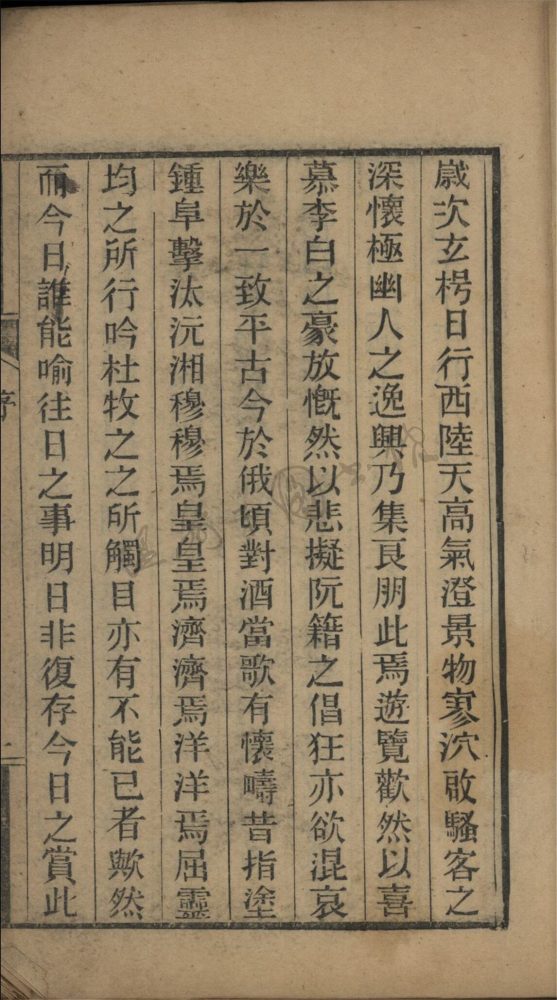 歲次玄枵日行西陸天高氣澄景物寥泬啟騷客之
深懷極幽人之逸興乃集良朋此焉遊覽歡然以喜
慕李白之豪放慨然以悲擬阮籍之倡狂亦欲混哀
樂於一致平古今於俄頃對酒當歌有懷疇昔指塗
鍾阜擊汰沅湘穆穆焉皇皇焉濟濟焉洋洋焉屈靈
均之所行吟杜牧之之所觸目亦有不能已者歟然
而今日誰能喻往日之事明日非復存今日之賞此
序